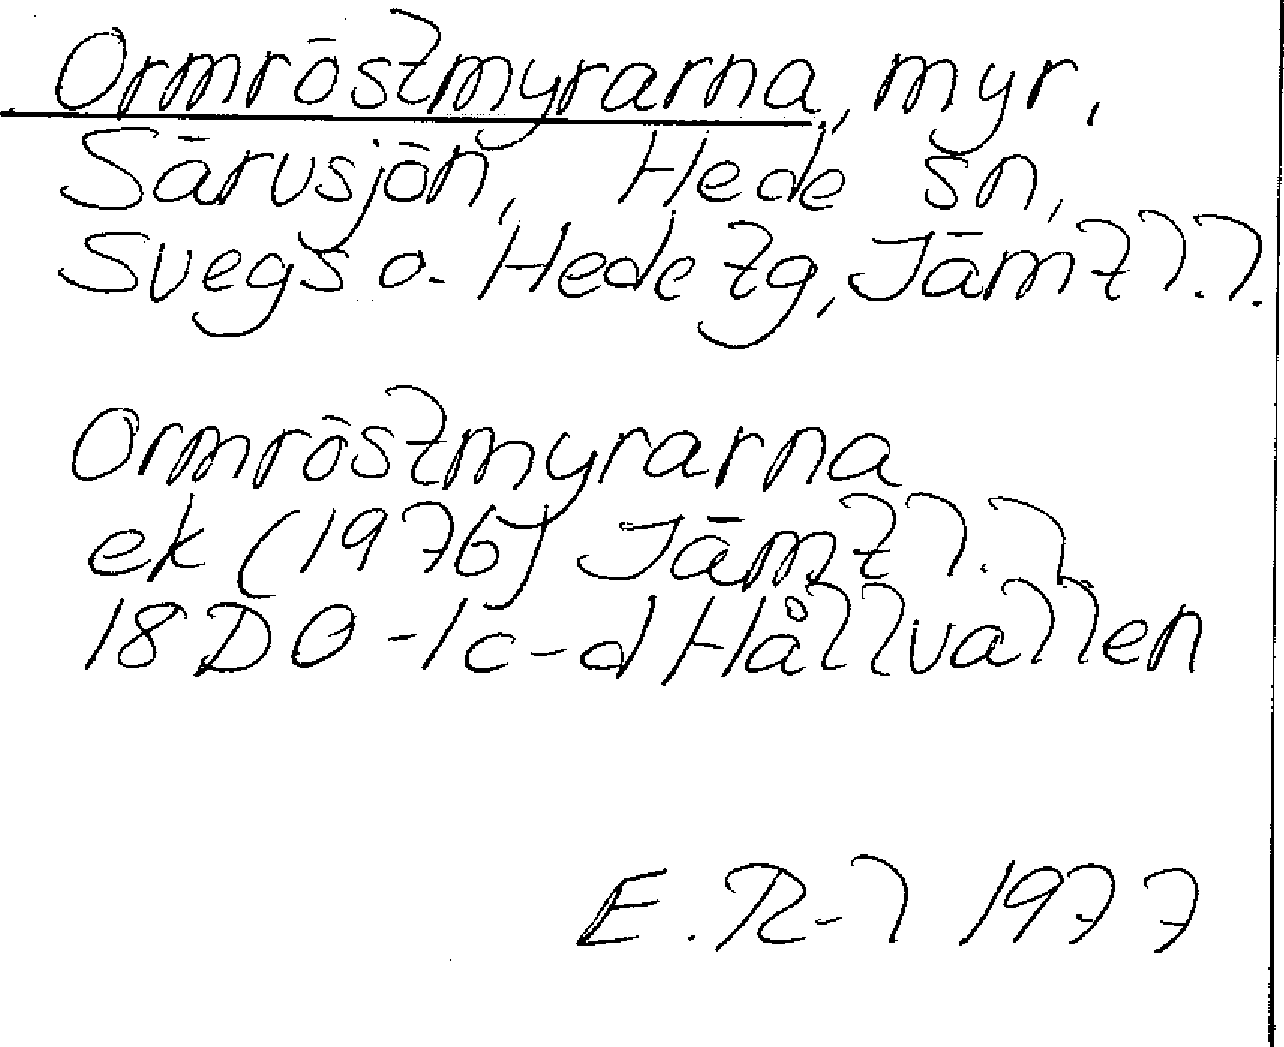 Ormröstmyrarna, myr,
Särvsjön, Hede sn,
Svegs o. Hede tg, Jämtl.l.
Ormröstmyrarna
ek (1976) Jämtl.l.
18D0-1c-d Hållvallen
E.R-l 1977